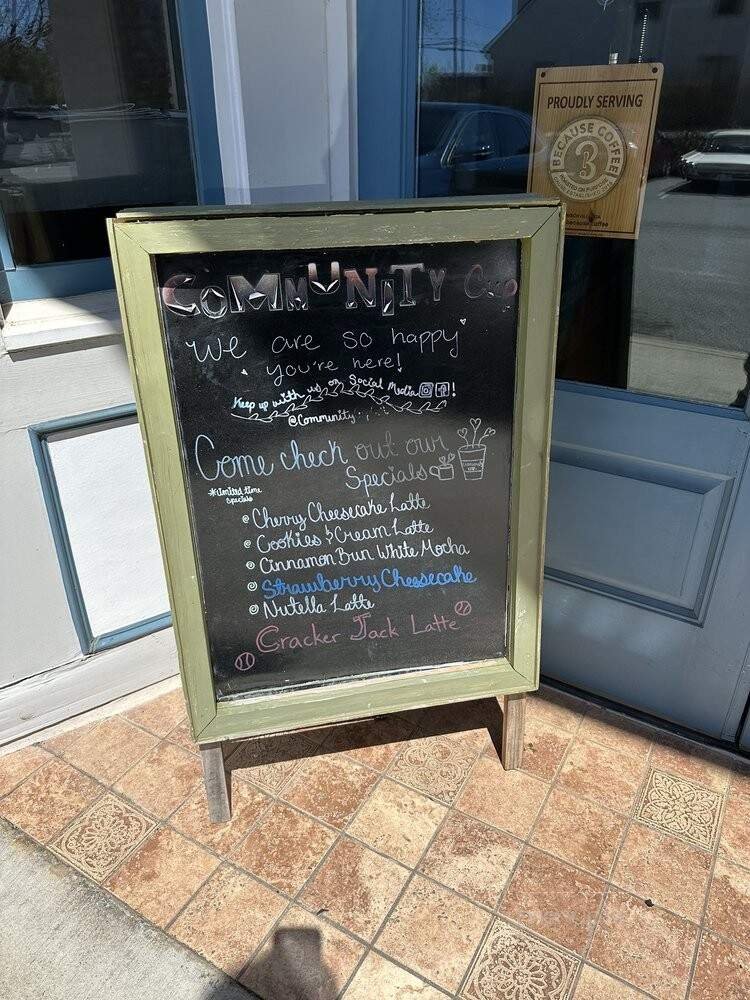 PROUDLY SERVING
BECAUSE COFFEE
3
COMMUNITY
We are so happy
you're here!
Keep up with us on Social Media !
@Community
Come check out our
Specials
*Limited time
specials
@ Cherry Cheesecake Latte
@ Cookies & Cream Latte
@ Cinnamon Bun White Mocha
@ Strawberry Cheesecake
@ Nutella Latte
Cracker Jack Latte